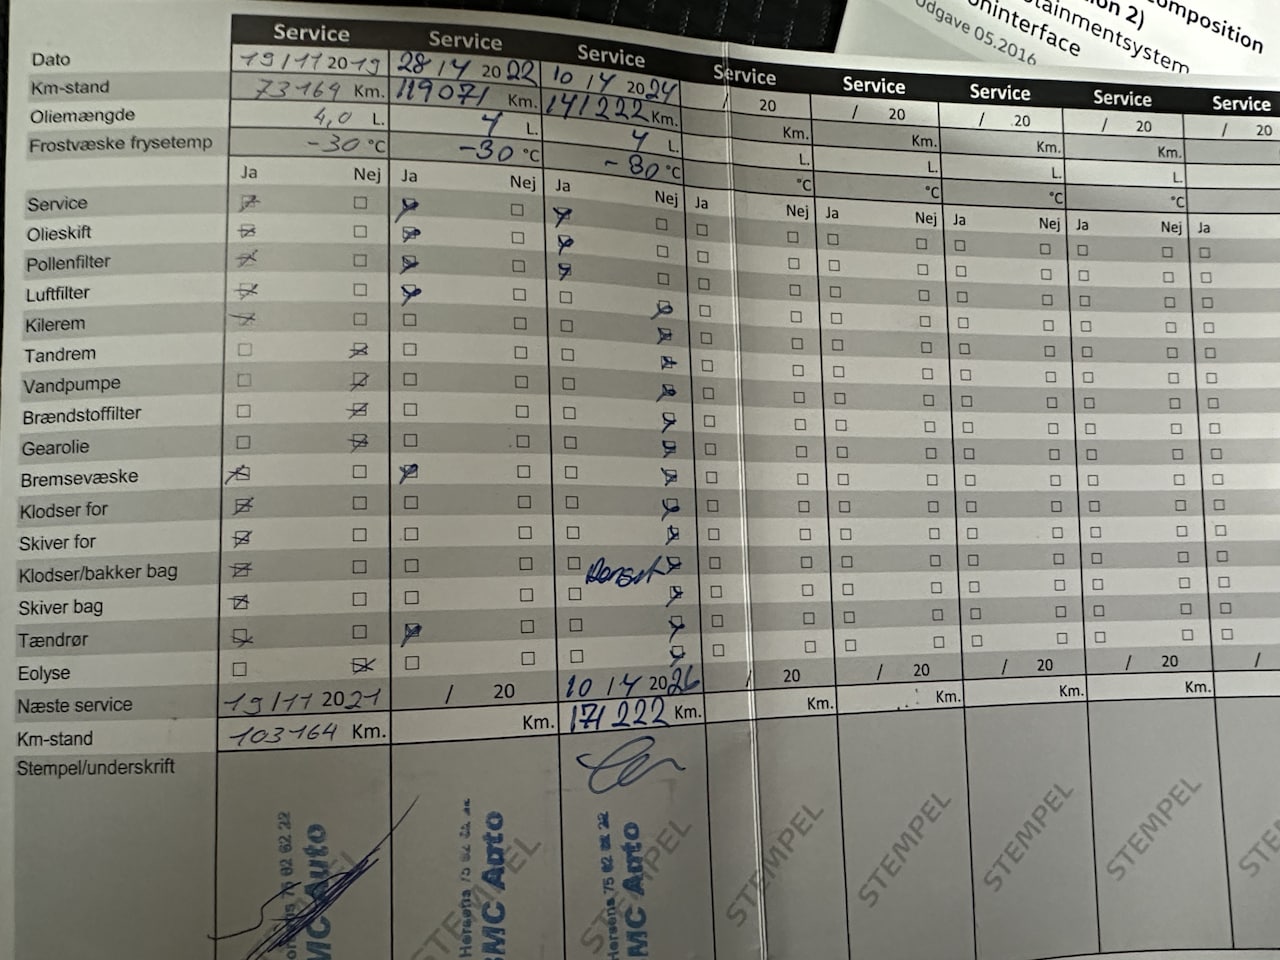 omposition
ion 2)
tainmentsystem
oninterface
Udgave 05.2016
Service Service Service Service Service Service Service Service
Dato 19/11 2019 28/4 2022 10/4 2024 / 20 / 20 / 20 / 20 / 20
Km-stand 73164 Km. 119071 Km. 141222 Km. Km. Km. Km. Km.
Oliemængde 4,0 L. 4 L. 4 L. L. L. L. L.
Frostvæske frysetemp -30 °C -30 °C -30 °C °C °C °C °C
Ja Nej Ja Nej Ja Nej Ja Nej Ja Nej Ja Nej Ja Nej Ja
Service
Olieskift
Pollenfilter
Luftfilter
Kilerem
Tandrem
Vandpumpe
Brændstoffilter
Gearolie
Bremsevæske
Klodser for
Skiver for
Klodser/bakker bag
Skiver bag
Tændrør
Eolyse
Næste service 19/11 2021 / 20 10/4 2026 / 20 / 20 / 20 / 20 /
Km-stand 103164 Km. Km. 171222 Km. Km. Km. Km. Km.
Stempel/underskrift
orsens 75 62 62 22
MC Auto
Horsens 75 62 62 22
MC Auto
STEMPEL
Horsens 75 62 62 22
MC Auto
STEMPEL
STEMPEL
STEMPEL
STEMPEL
STEMPEL
STE